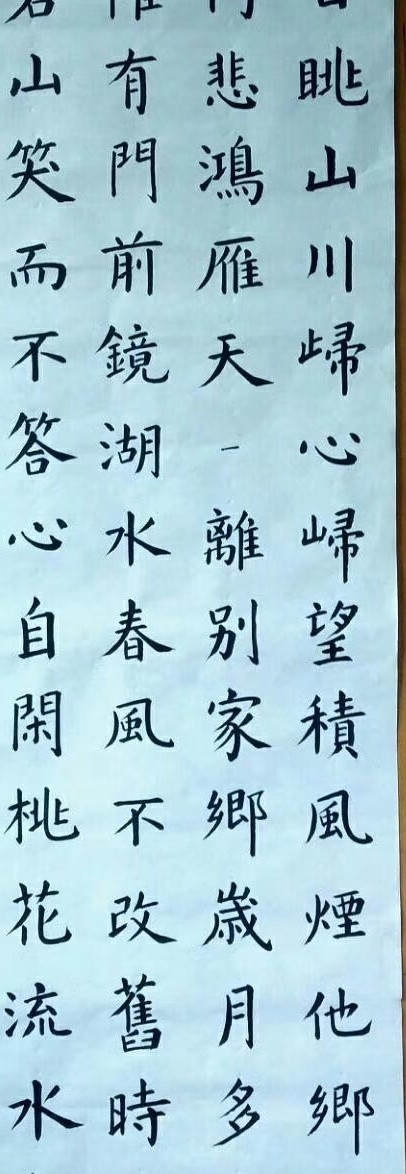 眺山川歸心歸望積風煙他鄉
悲鴻雁天一離別家鄉歲月多
有門前鏡湖水春風不改舊時
山笑而不答心自閑桃花流水